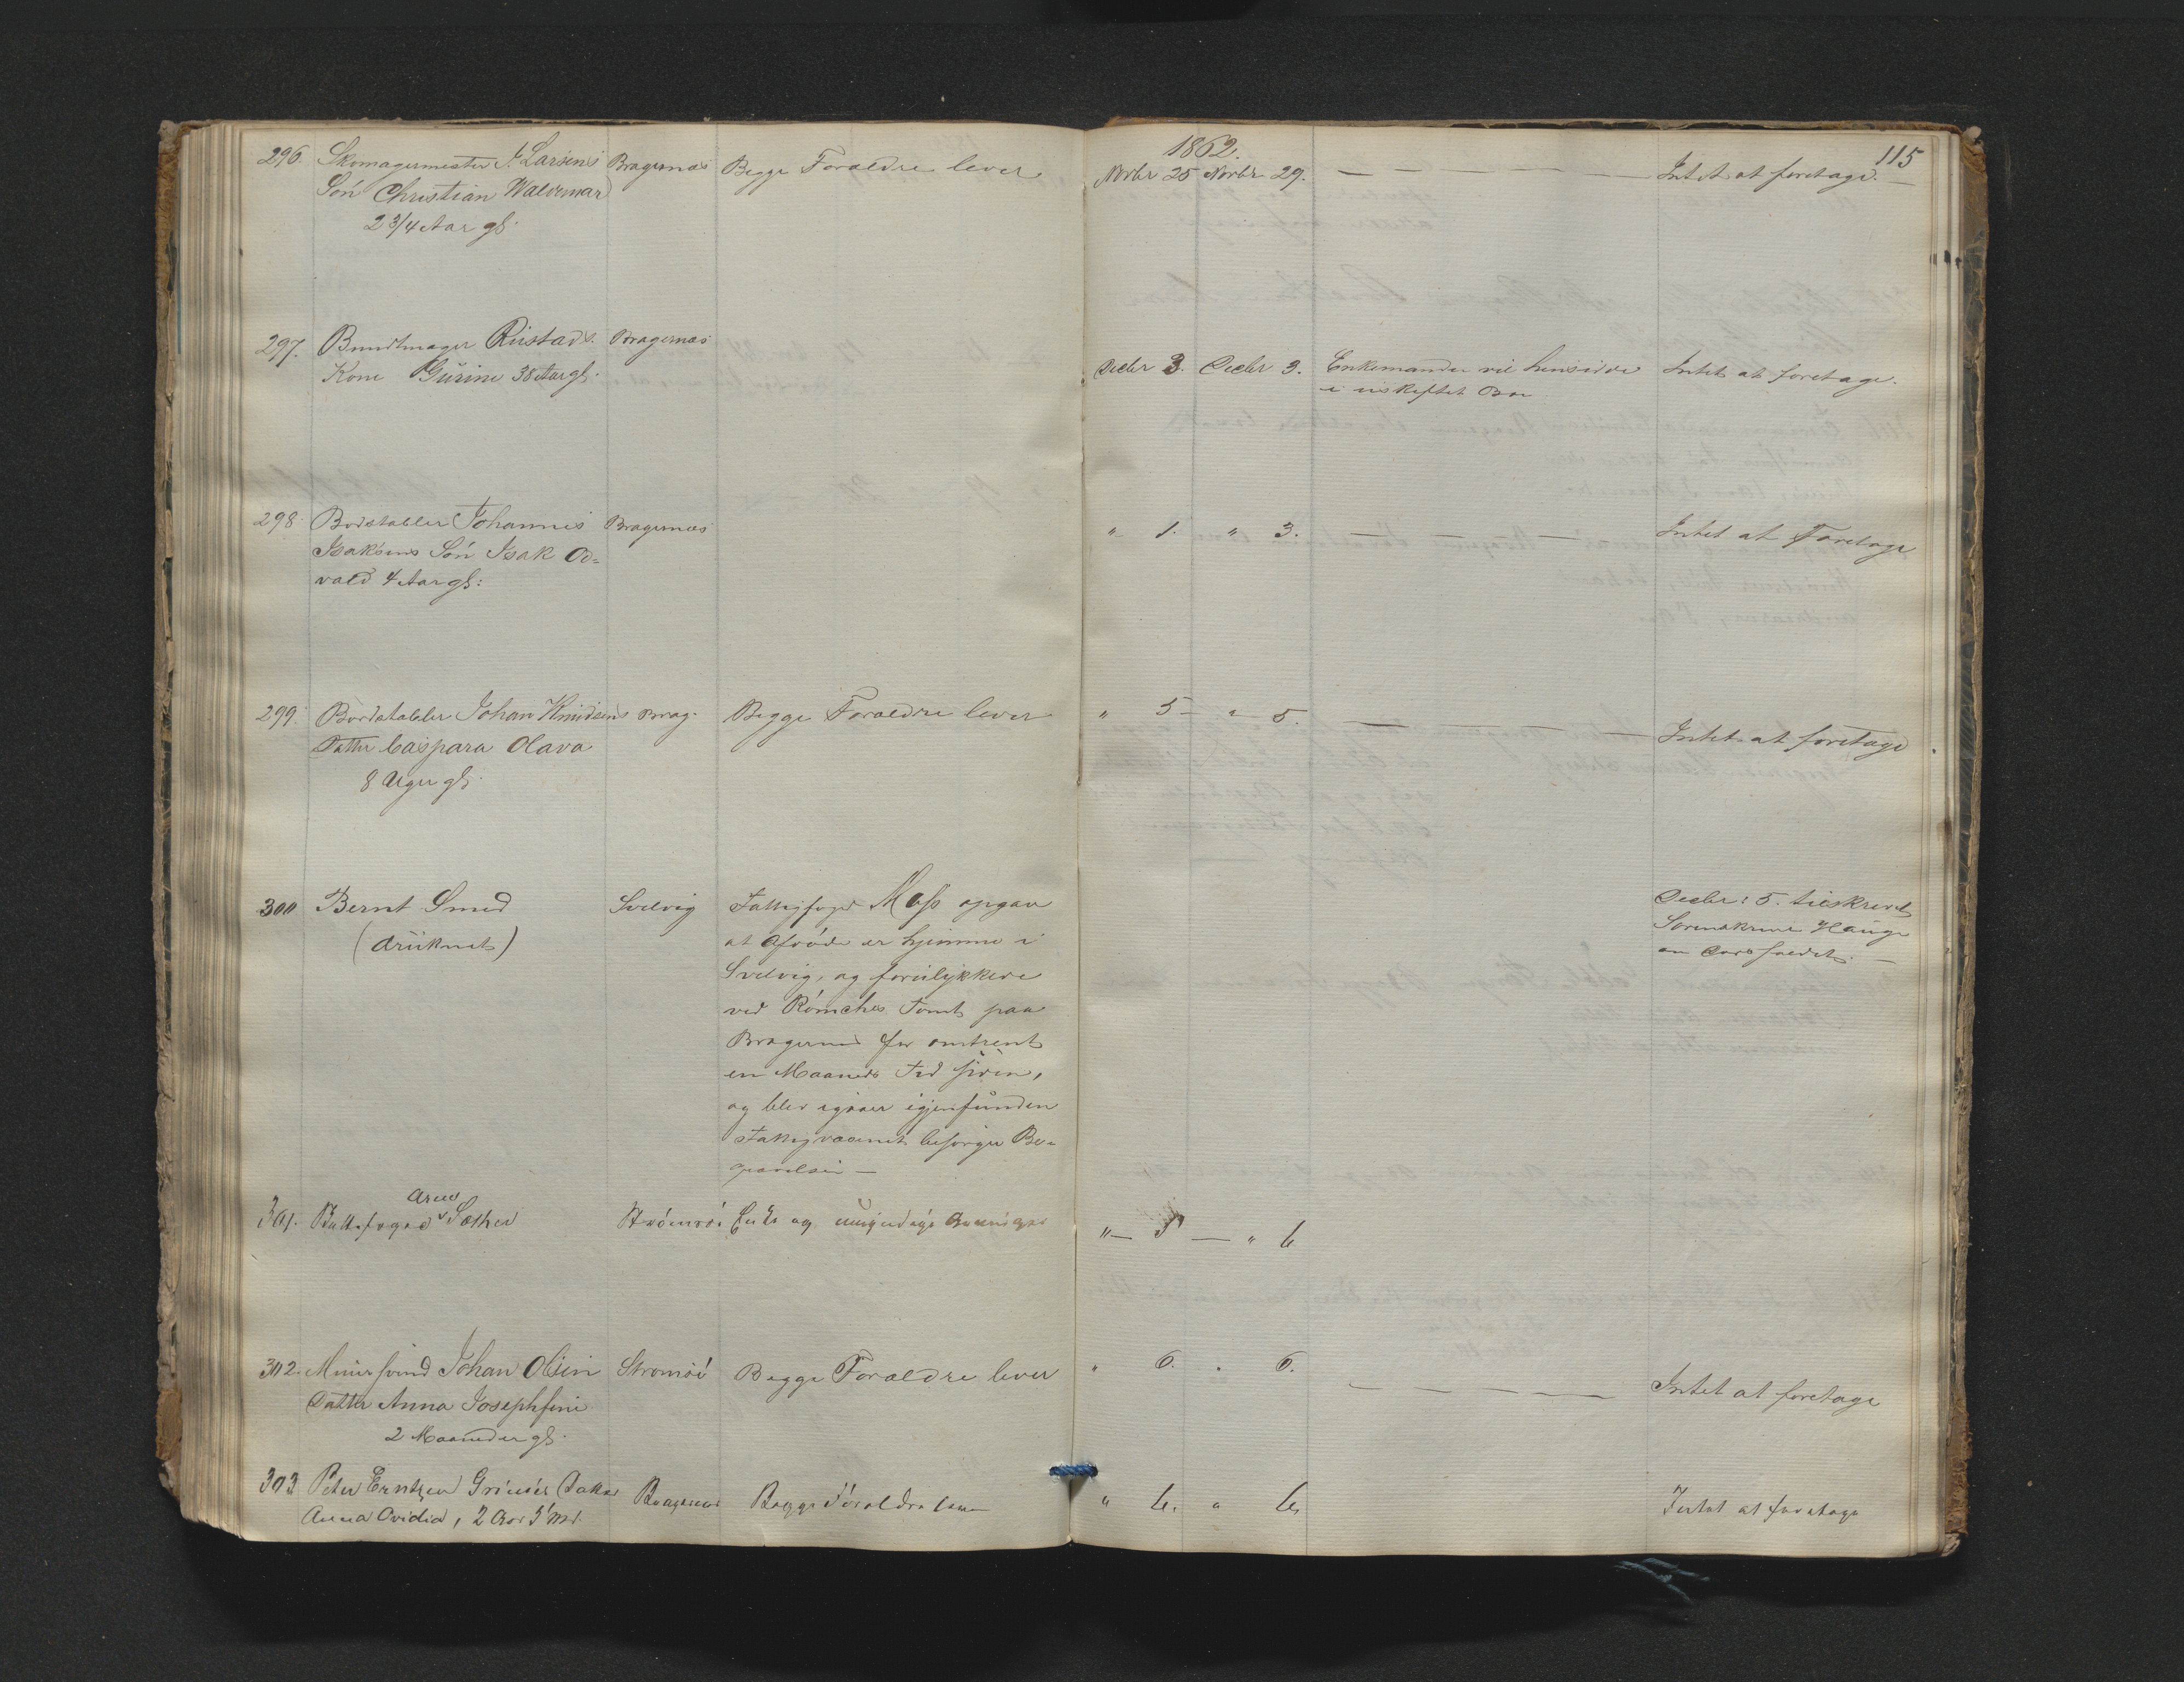 1862.
115
296. Skomagermester J. Larsens Bragernæs Begge Forældre lever Novbr 25 Novbr 29. — — — — — — Intet at foretage. —
Sön Christian Waldemar
2 3/4 Aar gl.
297. Bundtmager Rustads Bragernæs
Kone Gurine 38 Aar gl. Decbr 3. Decbr 3. Enkemanden vil hensidde Intet at foretage.
i uskiftet Bo
298. Bordstabler Johannes Bragernæs " 1. " 3. — — — — Intet at Foretage
Isaksens Sön Isak Od-
vald 4 Aar gl:
299. Bordstabler Johan Knudsens Brag. Begge Forældre lever " 5 — " 5. — — — — Intet at foretage
Datter Caspara Olava
8 Uger gl.
300 Bernt Smed Svelvig Fattigfoged Moss opgav Decbr: 5. tilskrevet
(druknet) at Afdöde er hjemme i Sorenskriver Hauge
Svelvig, og forulykkede om Dödsfaldet. —
ved Römckes Tomt paa
Bragernæs for omtrent
en Maaneds Tid siden,
og blev igaar igjenfunden
Fattigvæsenet besörger Be-
gravelsen —
Arne
301. foged Sæther Strömsö. Enke og umyndige " — 5 — " 6
302. Muursvend Johan Olsen Strömsö Begge Forældre lever " 6. " 6. — — — — — Intet at foretage
Datter Anna Josephine
2 Maaneder gl.
303 Peter Erntzen Datter Bragernæs Begge Forældre leve " 6. " 6. Intet at foretage
Anna Ovidia, 2 Aar 5 Md.